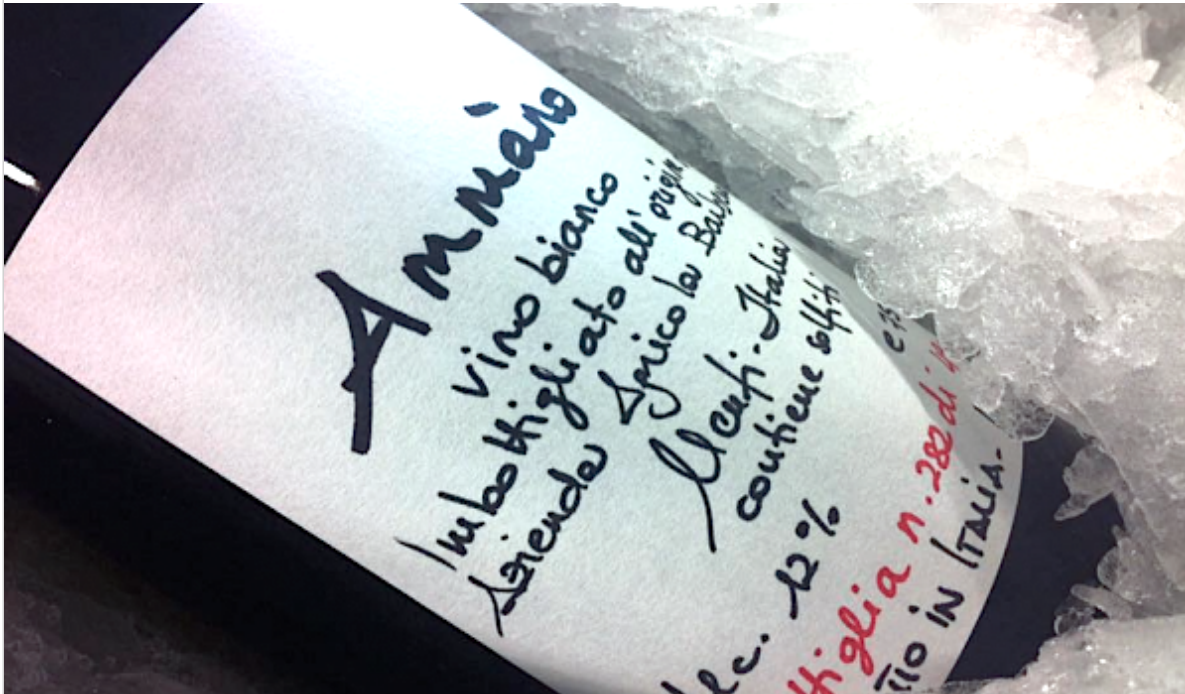 Ammàno
vino bianco
Imbottigliato all'origine
Azienda Agricola
Menfi-Italia
contiene solfiti
12% e 75
n. 282 di
IN ITALIA.